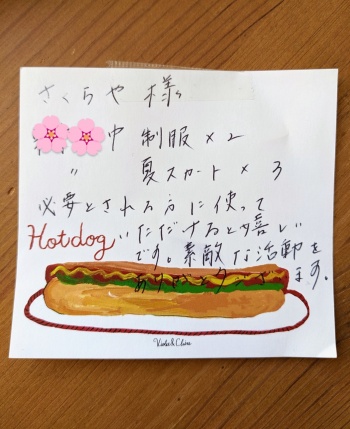 さくらや 様
中 制服 × 2
〃 夏スカート × 3
必要とされる方に使って
いただけると嬉しい
Hotdog
です。素敵な活動を
ます。